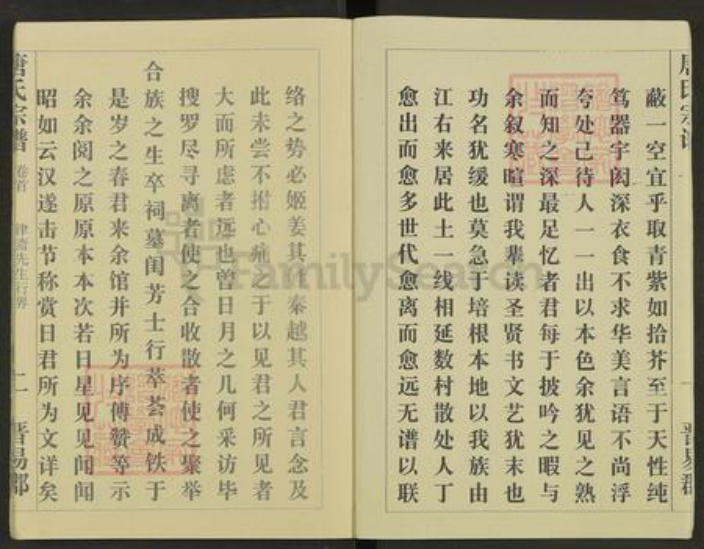 唐氏宗谱
蔽一空宜乎取青紫如拾芥至于天性纯
笃器宇闳深衣食不求华美言语不尚浮
夸处己待人一一出以本色余犹见之熟
而知之深最足忆者君每于披吟之暇与
余叙寒暄谓我辈读圣贤书文艺犹末也
功名犹缓也莫急于培根本地以我族由
江右来居此土一线相延数村散处人丁
愈出而愈多世代愈离而愈远无谱以联
晋易郡
络之势必姬姜其性秦越其人君言念及
此未尝不拊心痛之于以见君之所见者
大而所虑者远也曾日月之几何采访毕
搜罗尽寻离者使之合收散者使之聚举
合族之生卒祠墓闺芳士行萃荟成铁于
是岁之春君来余馆并所为序傅赞等示
余余阅之原原本本次若日星见见闻闻
昭如云汉遂击节称赏曰君所为文详矣
唐氏宗谱
卷首
先生行畀
二
晋易郡
FamilySearch